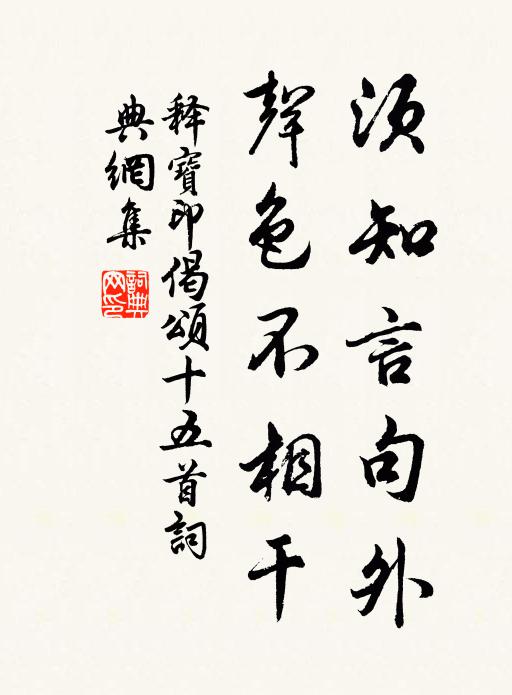 须知言句外
聲色不相干
释寶印偈頌十五首詞
典網集
詞典网印